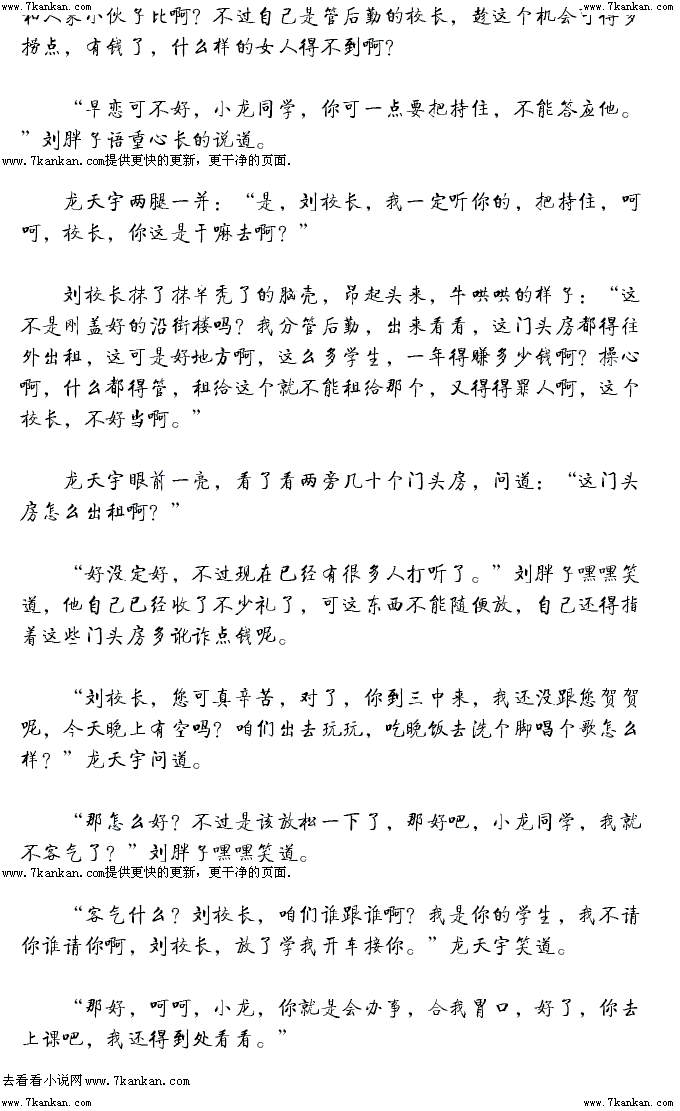 www.7kankan.com www.7kankan.com
和人家小伙子比啊？不过自己是管后勤的校长，趁这个机会可得多
捞点，有钱了，什么样的女人得不到啊？
“早恋可不好，小龙同学，你可一点要把持住，不能答应他。
”刘胖子语重心长的说道。
www.7kankan.com提供更快的更新，更干净的页面.
龙天宇两腿一并：“是，刘校长，我一定听你的，把持住，呵
呵，校长，你这是干嘛去啊？”
刘校长抹了抹半秃了的脑壳，昂起头来，牛哄哄的样子：“这
不是刚盖好的沿街楼吗？我分管后勤，出来看看，这门头房都得往
外出租，这可是好地方啊，这么多学生，一年得赚多少钱啊？操心
啊，什么都得管，租给这个就不能租给那个，又得得罪人啊，这个
校长，不好当啊。”
龙天宇眼前一亮，看了看两旁几十个门头房，问道：“这门头
房怎么出租啊？”
“好没定好，不过现在已经有很多人打听了。”刘胖子嘿嘿笑
道，他自己已经收了不少礼了，可这东西不能随便放，自己还得指
着这些门头房多讹诈点钱呢。
“刘校长，您可真辛苦，对了，你到三中来，我还没跟您贺贺
呢，今天晚上有空吗？咱们出去玩玩，吃晚饭去洗个脚唱个歌怎么
样？”龙天宇问道。
“那怎么好？不过是该放松一下了，那好吧，小龙同学，我就
不客气了？”刘胖子嘿嘿笑道。
www.7kankan.com提供更快的更新，更干净的页面.
“客气什么？刘校长，咱们谁跟谁啊？我是你的学生，我不请
你谁请你啊，刘校长，放了学我开车接你。”龙天宇笑道。
“那好，呵呵，小龙，你就是会办事，合我胃口，好了，你去
上课吧，我还得到处看看。”
去看看小说网www.7kankan.com
www.7kankan.com www.7kankan.com